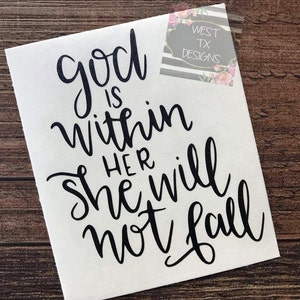 WEST
TX
DESIGNS
god
IS
within
HER
she will
not fall